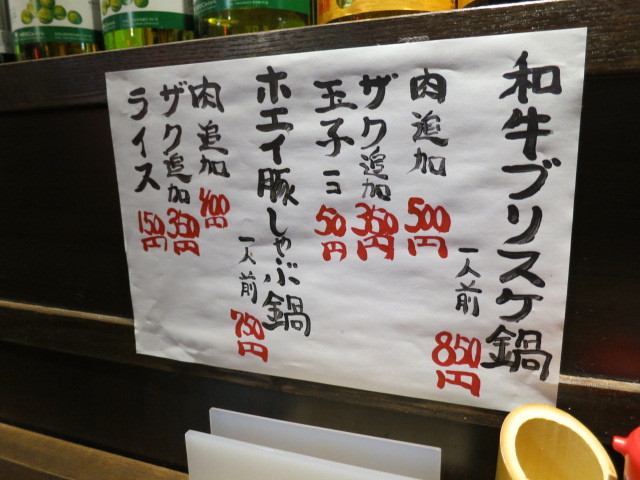 和牛ブリスケ鍋
一人前
850円
肉追加
500円
ザク追加
350円
玉子一コ
50円
ホエイ豚しゃぶ鍋
一人前
750円
肉追加
400円
ザク追加
350円
ライス
150円